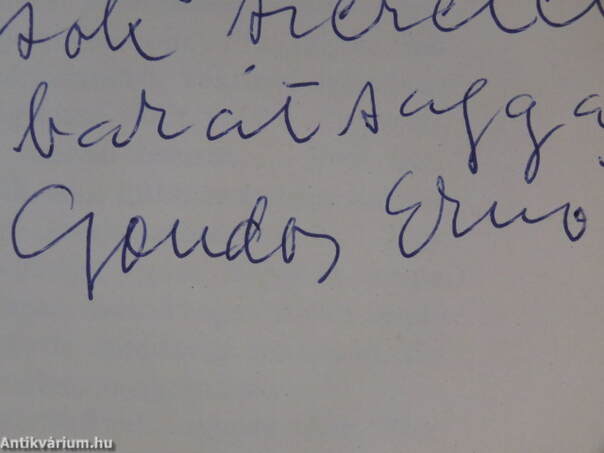 sok szerete
barátságga
Gondos Ernő
Antikvárium.hu